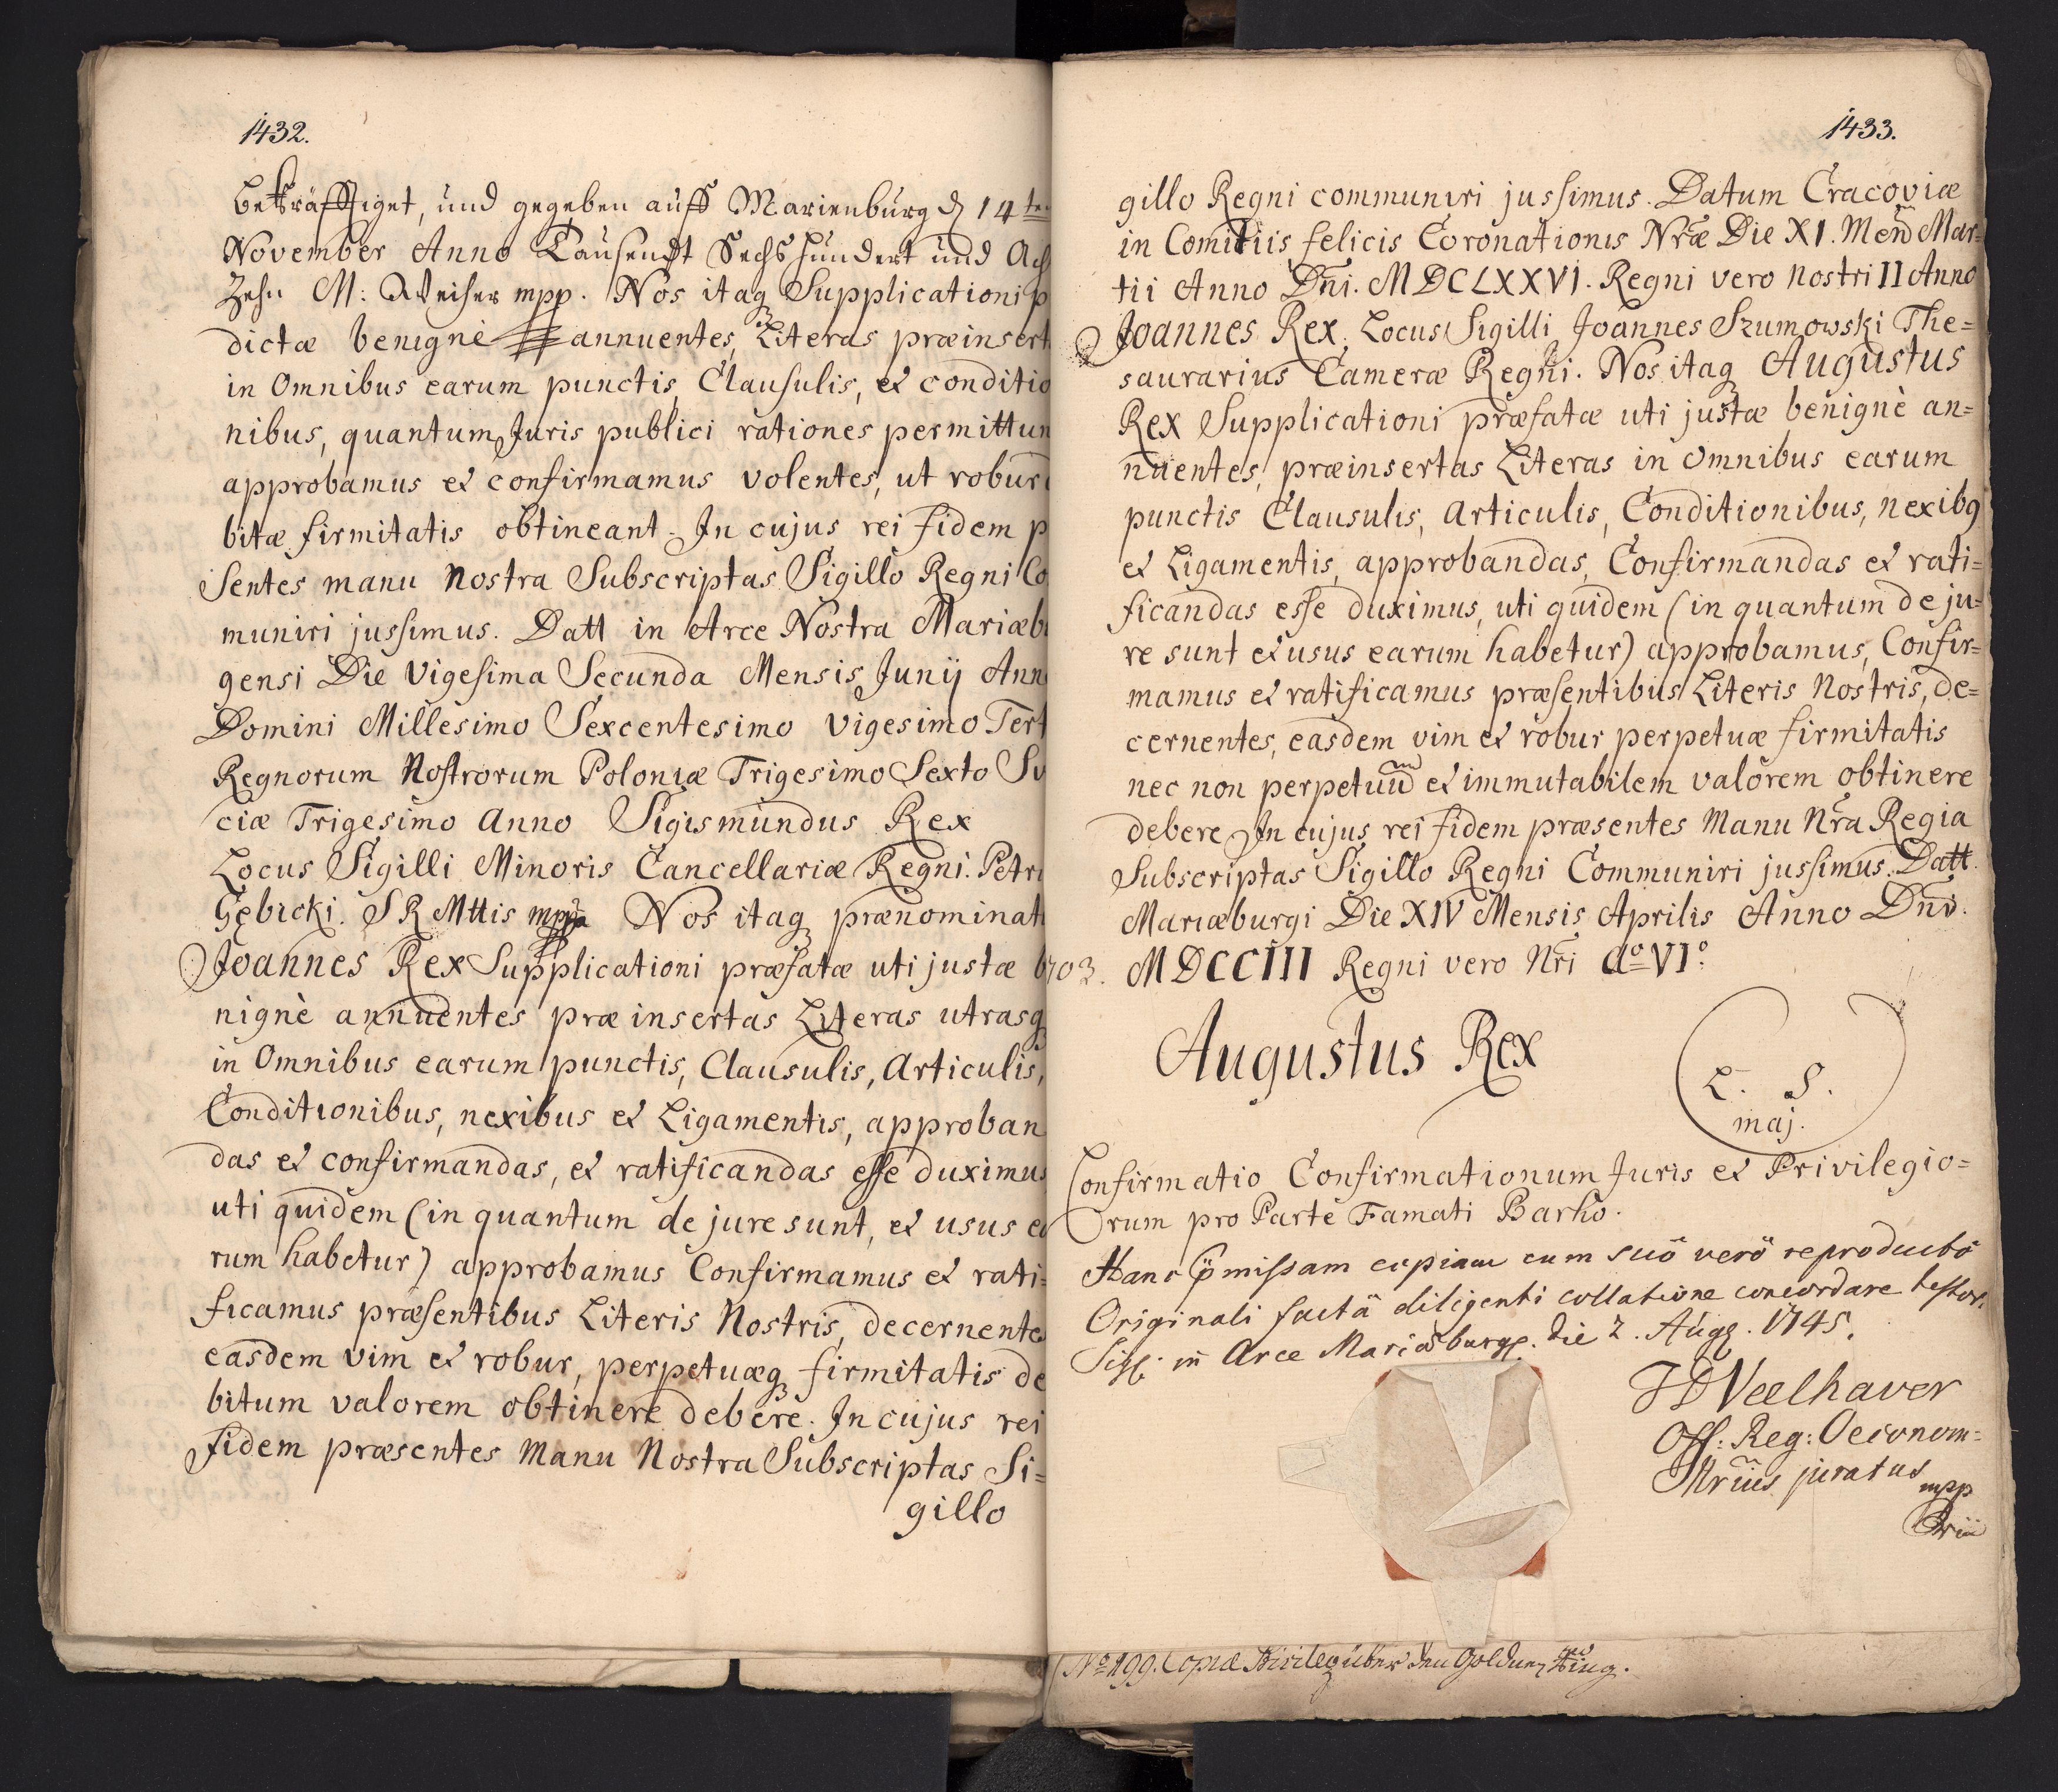 1432.
bekräfftiget, und gegeben auff Marienburg d 14te
November Anno Tausendt Sechshundert und Ach
Zehn M: Weiher mpp. Nos itaq Supplicationi p
dictæ benignè annuentes, Literas præinsert
in Omnibus earum punctis, Clausulis, et conditio
nibus, quantum Juris publici rationes permittun
approbamus et confirmamus volentes, ut robur
bitæ firmitatis obtineant. In cujus rei fidem p
sentes manu Nostra Subscriptas Sigillo Regni Co
muniri jussimus. Datt in Arce Nostra Mariæb
gensi Die Vigesima Secunda Mensis Junij Ann
Domini Millesimo Sexcentesimo Vigesimo Tert
Regnorum Nostrorum Poloniæ Trigesimo Sexto Sv
ciæ Trigesimo Anno Sigismundus Rex
Locus Sigilli Minoris Cancellariæ Regni. Petr
Gębicki. S R Mttis mppa Nos itaq prænominat
Joannes Rex Supplicationi præfatæ uti justæ b
nignè annuentes præinsertas Literas utrasq
in Omnibus earum punctis, Clausulis, Articulis,
Conditionibus, nexibus et Ligamentis, approban
das et confirmandas, et ratificandas esse duximus
uti quidem (in quantum de jure sunt, et usus ea
rum habetur) approbamus Confirmamus et rati=
ficamus præsentibus Literis Nostris, decernente
easdem vim et robur, perpetuæq firmitatis de
bitum valorem obtinere debere. In cujus rei
fidem præsentes Manu Nostra Subscriptas Si=
gillo
1433.
gillo Regni communiri jussimus. Datum Cracoviæ
in Comitiis felicis Coronationis Nræ Die XI. Mens Mar=
tii Anno Dni. MDCLXXVI. Regni vero nostri II Anno
Joannes Rex. Locus Sigilli Joannes Szumowski The=
saurarius Cameræ Regni. Nos itaq Augustus
Rex Supplicationi præfatæ uti justæ benignè an=
nuentes, præinsertas Literas in omnibus earum
punctis Clausulis, Articulis, Conditionibus, nexibq
et Ligamentis, approbandas, Confirmandas et rati=
ficandas esse duximus, uti quidem (in quantum de ju=
re sunt et usus earum habetur) approbamus, Confir=
mamus et ratificamus præsentibus Literis Nostris, de=
cernentes, easdem vim et robur perpetuæ firmitatis
nec non perpetuum et immutabilem valorem obtinere
debere In cujus rei fidem præsentes Manu Nra Regia
Subscriptas Sigillo Regni Communiri jussimus. Datt.
Mariæburgi Die XIV Mensis Aprilis Anno Dni.
703. MDCCIII Regni vero Nri Ao VIo.
Augustus Rex
L. S.
maj.
Confirmatio Confirmationum Juris et Privilegio=
rum pro Parte Famati Barho.
Hanc pmissam copiam cum suô verô reproductô
Originali factâ diligenti collatione concordare testor.
in Arce Mariæburg. die 2. Augq. 1745.
Veelhaver
Off: Reg: Oeconom=
juratus
mpp
No 199. Copiæ Privileg über den Goldnen Ring.